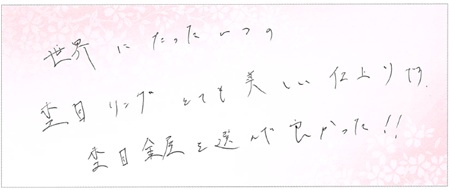 世界にたった一つの
杢目リングとても美しい仕上りです.
杢目金屋を選んで良かった!!